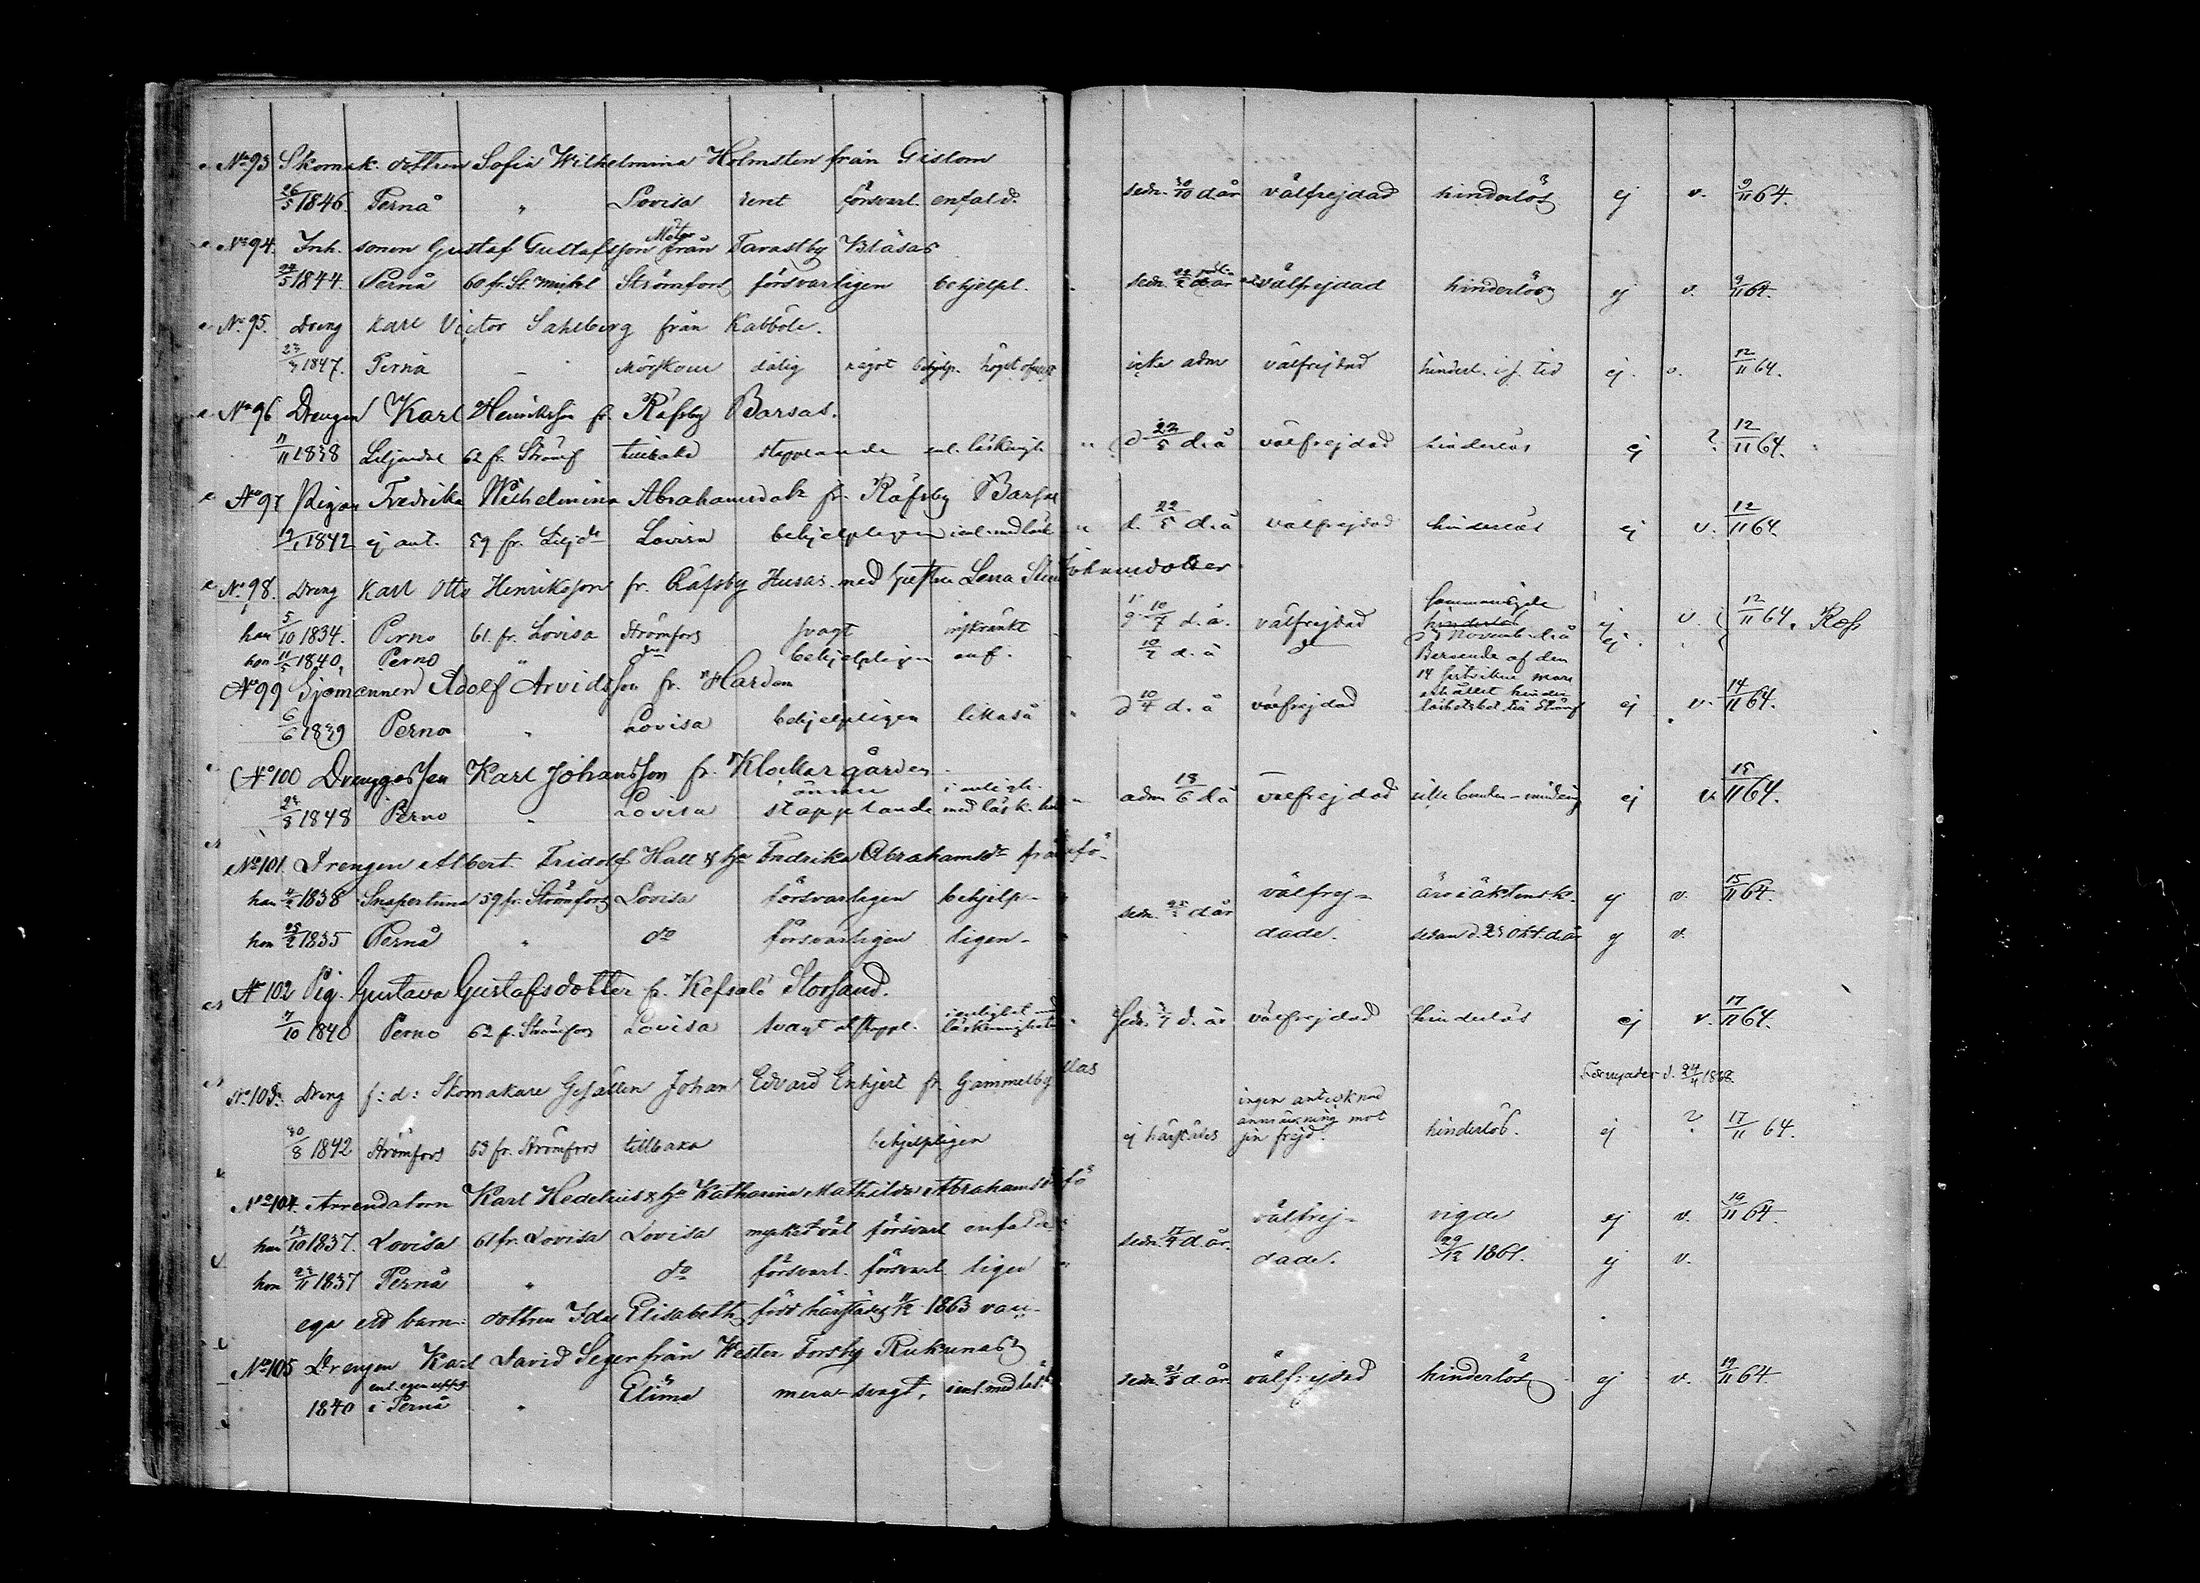 No 93 Skomak. dottren Sofia Wilhelmina Holmsten från Gislom
26/5 1846. Pernå " Lovisa rent försvarl. enfald. sedn. 30/10 d. år välfrejdad hinderlös ej v. 9/11 64.
No 94. Inh. sonen Gustaf Gustafsson från Tavastby Bläsas
24/5 1844. Pernå 60 fr. St Mickel Strömfors försvarligen behjelpl. sedn. d. år välfrejdad hinderlös ej v. 9/11 64.
No 95. Dreng Karl Victor Sahlberg från Kabböle.
23/3 1847. Pernå – Mörskom dålig något behjelp. högst icke adm välfrejdad hinderl. i s. tid ej v. 12/11 64.
No 96 Drengen Karl Henriksson fr. Räfsby Barsas.
11/11 1838 Liljendal 62 fr. Strömf tillbaka stapplande enl. läskunigh " d. 22/5 d. å välfrejdad hinderlös ej ? 12/11 64.
No 97 Pigan Fredrika Wilhelmina Abrahamsdotr fr. Räfsby Barsas
19/1 1842 ej ant. 59 fr. Liljdl Lovisa behjelpligen i enl. med läsk " d. 22/5 d. å välfrejdad hinderlös ej v. 12/11 64.
No 98. Dreng Karl Otto Henriksson fr. Räfsby Husas med hustru Lena Stina Johansdotter
han 5/10 1834. Perno 61. fr. Lovisa Strömfors svagt inskränkt 10/7 d. å. välfrejdad sammanvigde hinderlös ej v. 12/11 64.
hon 11/5 1840, Perno " do behjelpligen enf. 10/7 d. å November d. å ej "
No 99 Sjömannen Adolf Arvidsson fr. Hardom Beroende af den 14 mars erhållet hinder
6/6 1839 Perno " Lovisa behjelpligen likaså " d 10/4 d. å välfrejdad Strömf ej v. 14/11 64.
No 100 Drenggossen Karl Johansson fr. Klockar gården
24/8 1848 Perno " Lovisa ännu stapplande i enligh. med läsk. " adm 18/6 d. å välfrejdad ej v. 15/11 64.
No 101. Drengen Albert Fridolf Hall & hu Fredrika Abrahamsdr från
han 4/2 1838 Snapertuna 59 fr. Strömfors Lovisa försvarligen behjelp- sedn. d. år välfrej- äro i äktensk. ej v. 15/11 64.
hon 25/2 1835 Pernå " do försvarligen ligen- dade. sedan d. 23 Okt. d. år ej v.
No 102 Pig. Gustava Gustafsdotter fr. Kefsalö Storsand.
7/10 1840 Perno 62 fr. Strömfors Lovisa svagt o stappl. i enlighet med läskunnigheten " sedn. d. år välfrejdad hinderlös ej v. 17/11 64.
No 103. Dreng f: d: Skomakare Gesällen Johan Edvard Enhjelt fr. Gammelby
30/8 1842 Strömfors 63 fr. Strömfors tillbaka behjelpligen ej härstädes ingen antecknad anmärkning mot sin frejd. hinderlös. ej ? 17/11 64.
No 104. Arrendatorn Karl Hedelius & hu Katharina Mathilda Abrahamsdr
han 13/10 1837. Lovisa 61 fr. Lovisa Lovisa mycket väl försvarl enfald. sedn. 17/4 d. år. välfrej- vigde ej v. 19/11 64.
hon 23/11 1837 Pernå " do försvarl. försvarl ligen " dade. 29/12 1861. ej v.
ega ett barn: dottren Ida Elisabeth, född härstädes 11/12 1863 vac.
No 105 Drengen Karl David Seger från Wester Forsby Rukunas
1840 enl. egen uppg i Pernå " Elimä mera svagt, i enl. med läs. sedn. 21/8 d. år. välfrejdad hinderlös ej v. 19/11 64.